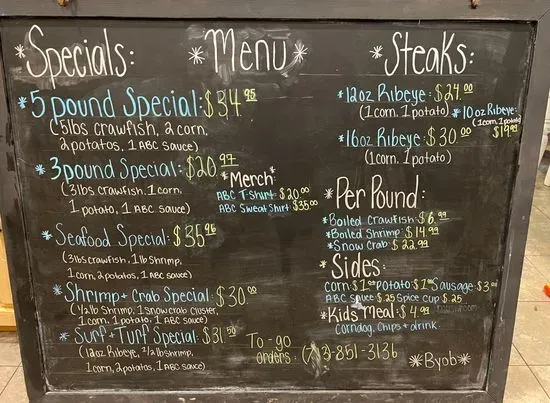 *Specials:
*Menu*
*5 pound Special: $34.95
(5lbs crawfish, 2 corn,
2 potatos, 1 ABC sauce)
*3 pound Special: $20.97
(3lbs crawfish, 1 corn,
1 potato, 1 ABC sauce)
*Merch*
ABC T-Shirt $20.00
ABC Sweat Shirt $35.00
*Seafood Special: $35.96
(3lbs crawfish, 1lb shrimp,
1 corn, 2 potatos, 1 ABC sauce)
*Shrimp + Crab Special: $30.00
(1/2lb Shrimp, 1 snow crab cluster,
1 corn, 1 potato, 1 ABC sauce)
*Surf + Turf Special: $31.50
(12oz Ribeye, 1/2lb shrimp,
1 corn, 2 potatos, 1 ABC sauce)
To-go
orders:
*Steaks:
*12oz Ribeye: $24.00
(1 corn, 1 potato)
*10oz Ribeye:
(1 corn, 1 potato)
$19.99
*16oz Ribeye: $30.00
(1 corn, 1 potato)
*Per Pound:
*Boiled Crawfish: $6.99
*Boiled Shrimp: $14.99
*Snow Crab: $22.99
*Sides:
Corn: $1.00 Potato: $1.00 Sausage: $3.00
ABC Sauce $.25 Spice Cup $.25
*Kids Meal: $4.99
Corndog, Chips + drink
*Byob*